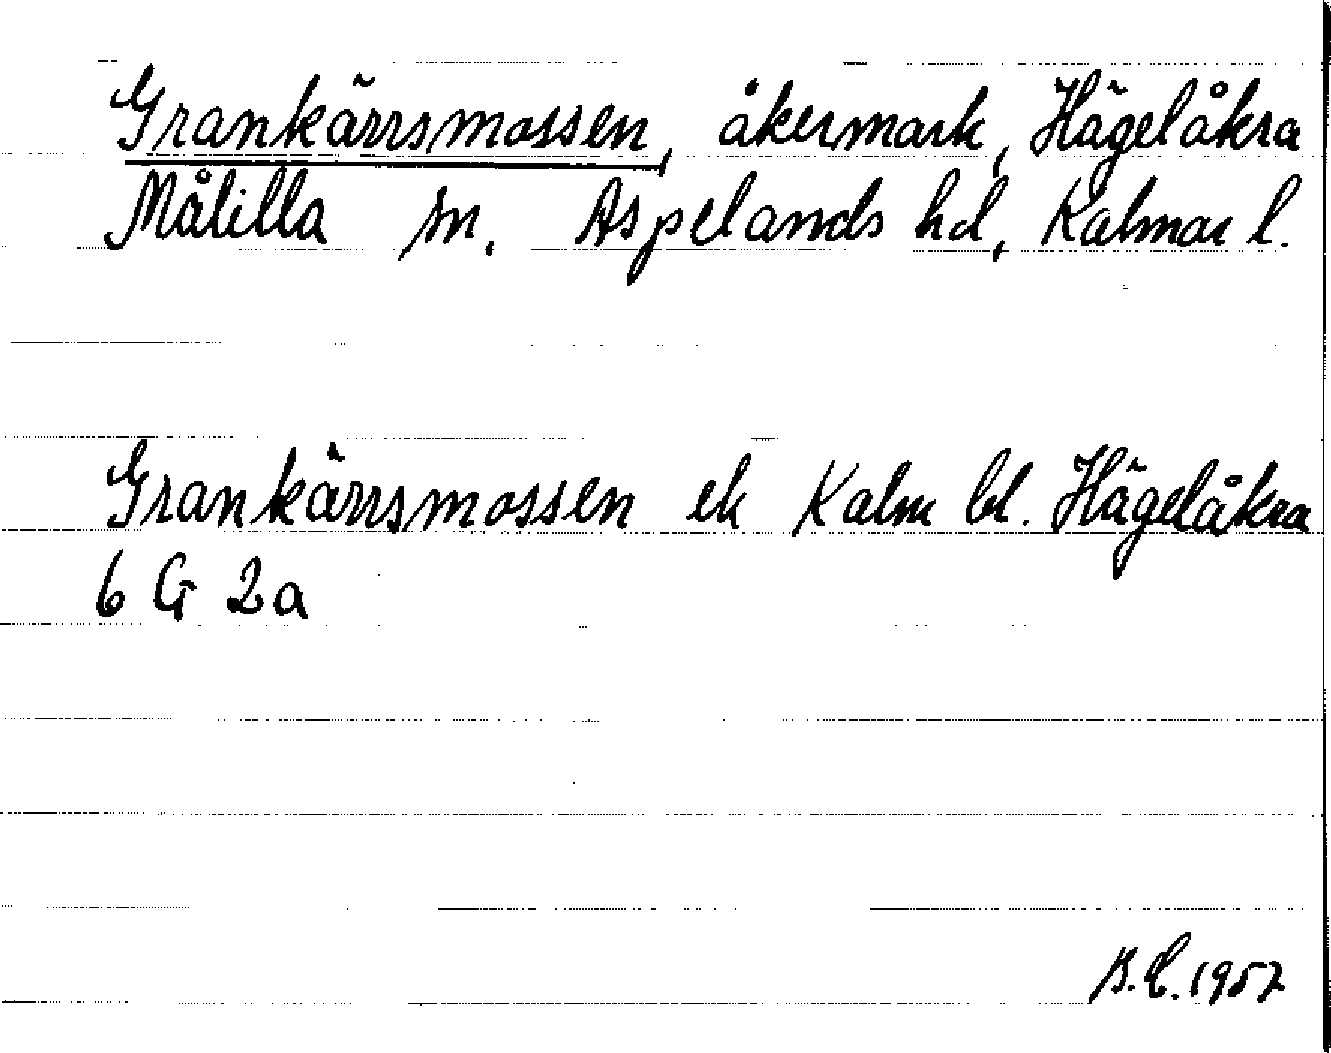 Grankärrsmossen, åkermark, Hägelåkra
Målilla sn, Aspelands hd, Kalmar l.
Grankärrsmossen ek Kalm bl. Hägelåkra
6 G 2a
B.E. 1957